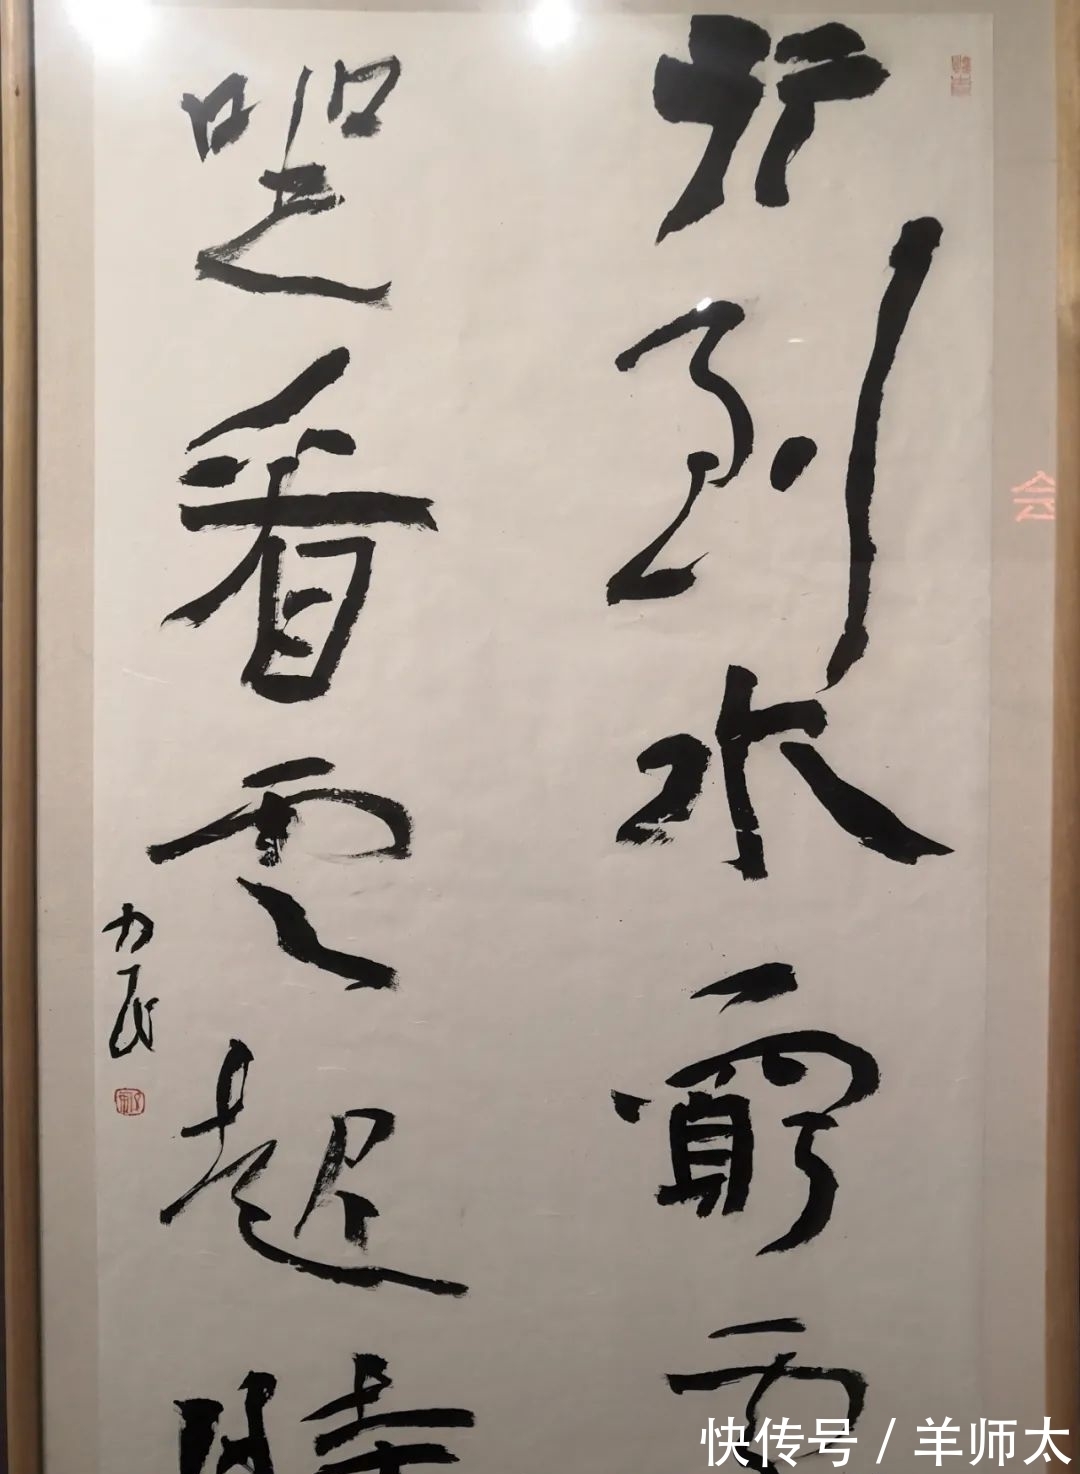 行到水窮處
坐看雲起時
力民
会
快传号 / 羊师太